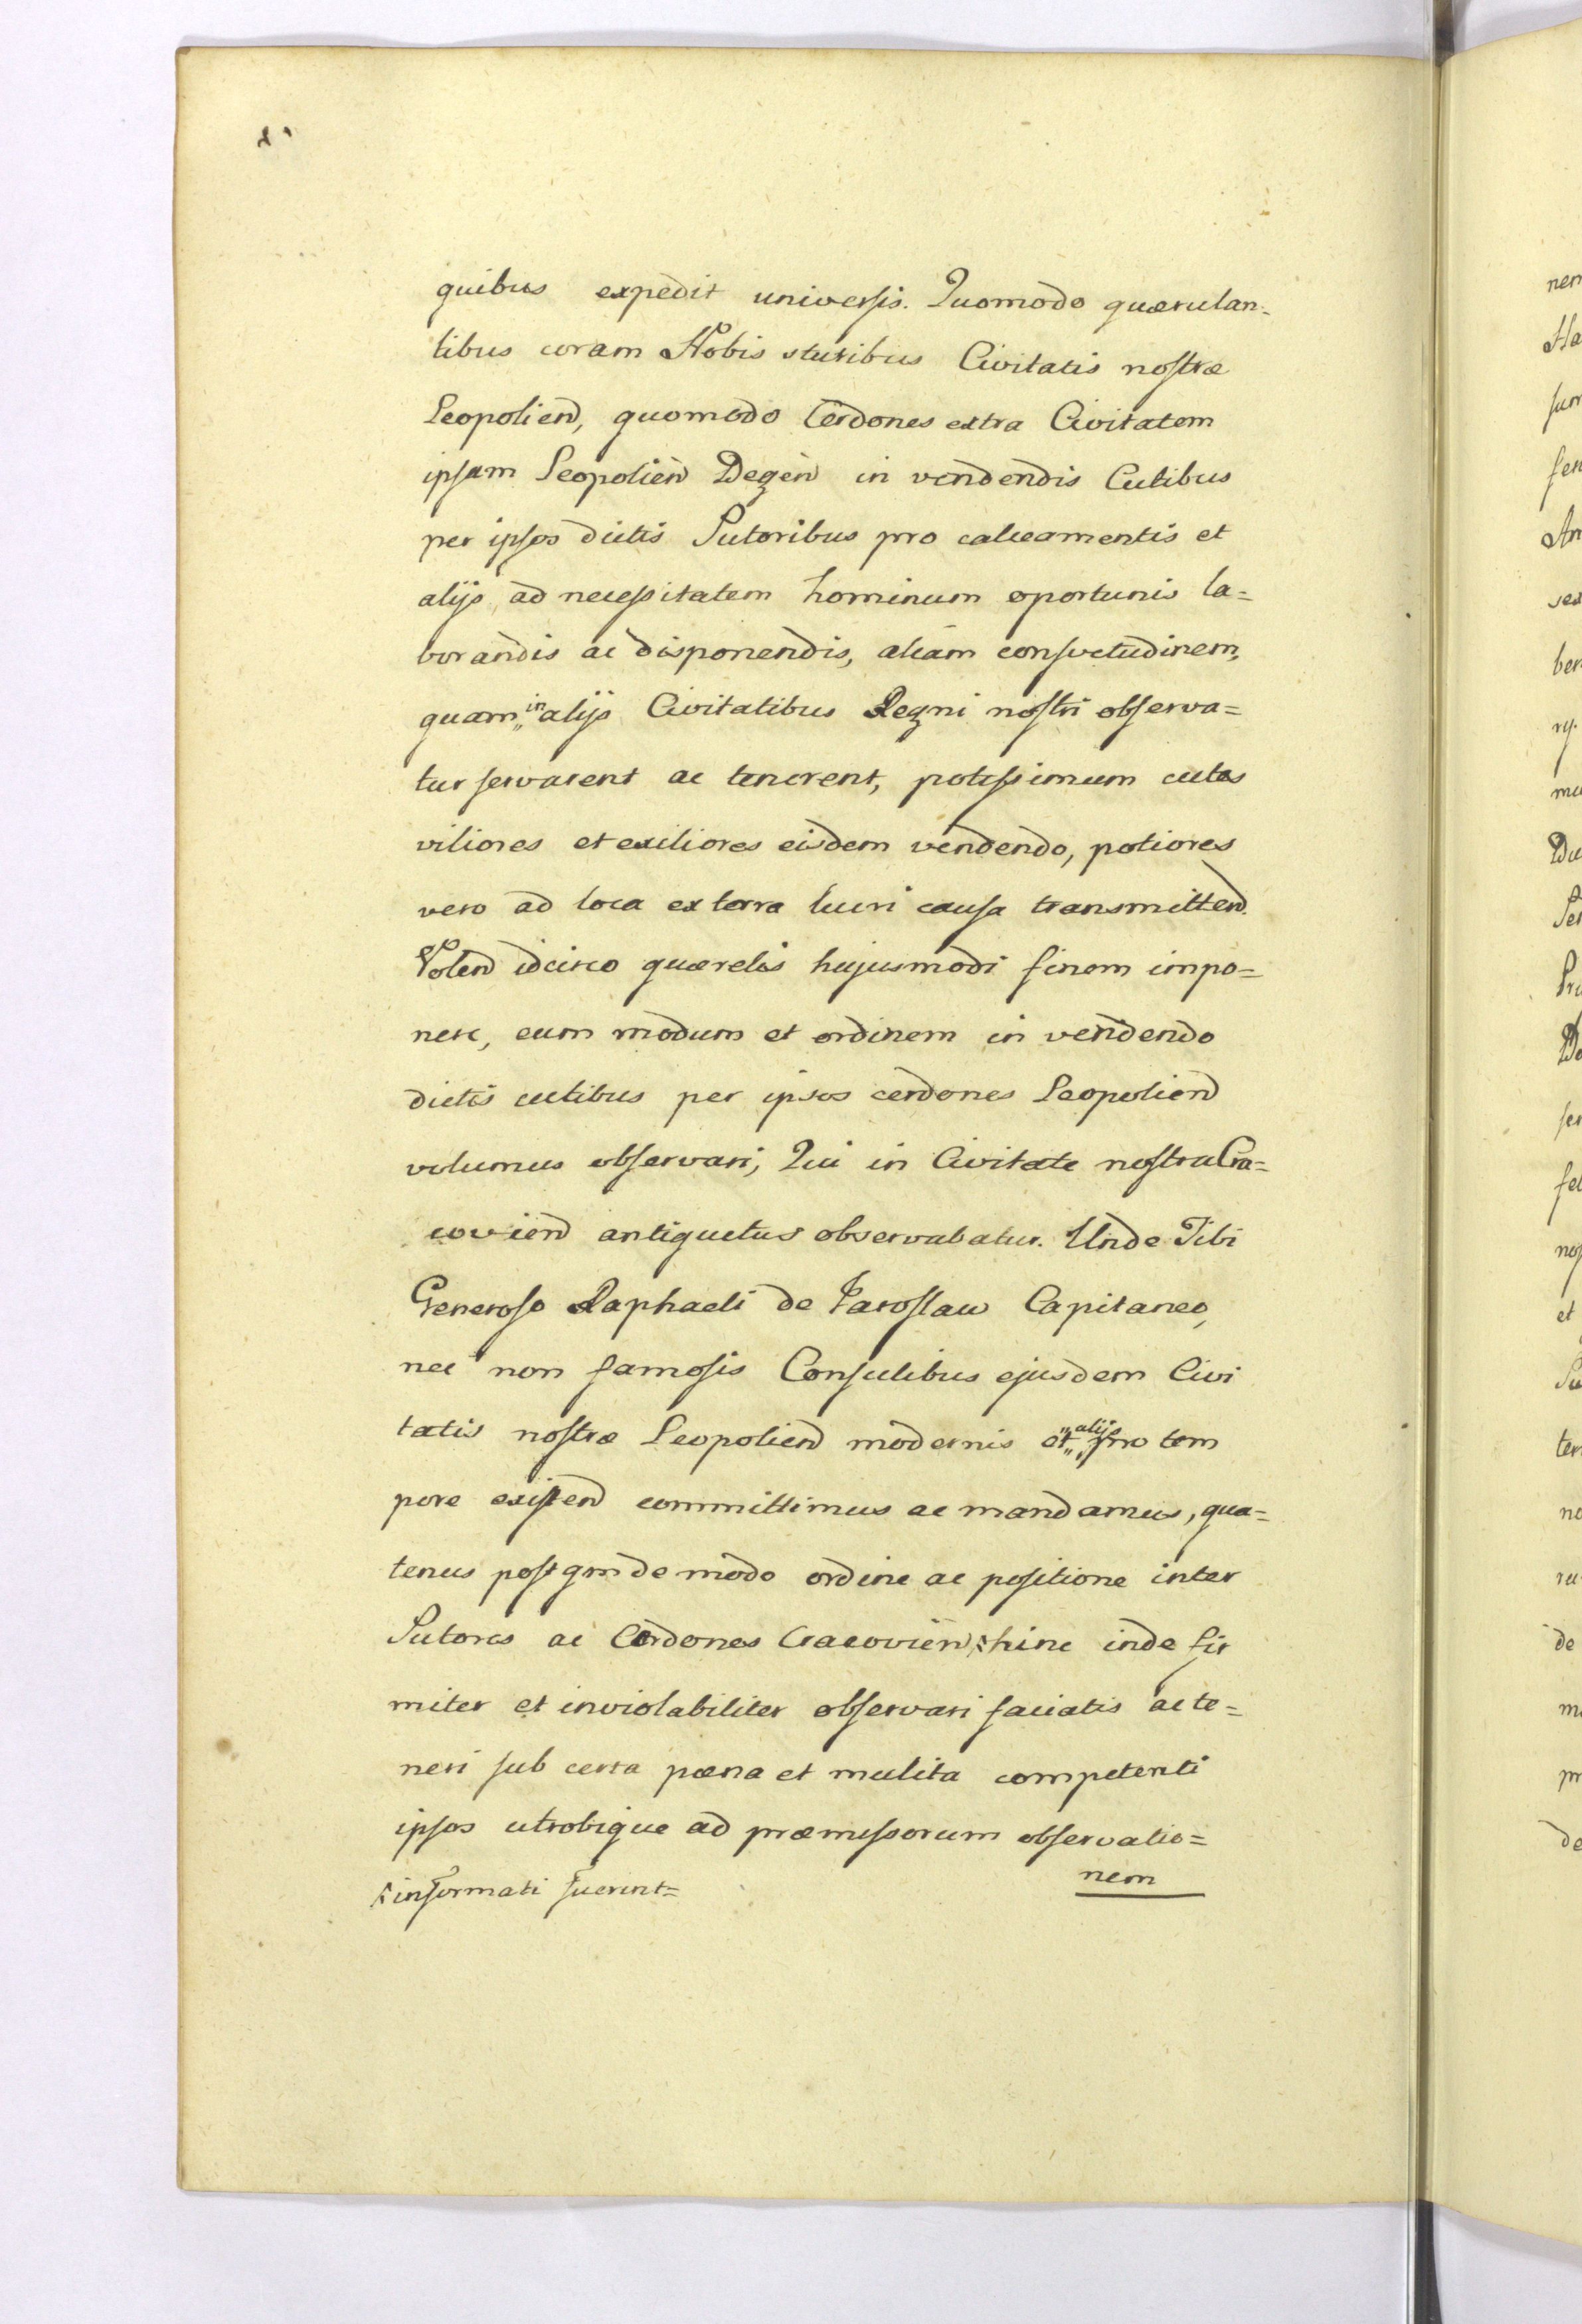 quibus expedit universis. Quomodo quærulan=
tibus coram Nobis suturibus Civitatis nostræ
Leopolien̄d, quomodo Cerdones extra Civitatem
ipsam Leopolien̄d Degen̄d in vendendis Cutibus
per ipsos dictis Sutoribus pro calceamentis et
alijs ad necessitatem hominum oportunis la=
borandis ac disponendis, aliam consvetudinem,
quam „in alijs Civitatibus Regni nostri observa=
tur servarent ac tenerent, potissimum cutes
viliores et exiliores eisdem vendendo, potiores
vero ad loca extera lucri causa transmitten̄d
Volen̄d idcirco quærelis hujusmodi finem impo=
nere, eum modum et ordinem in vendendo
dictis cutibus per ipsos cerdones Leopolien̄d
volumus observari, Qui in Civitate nostra Cra=
covien̄d antiquitus observabatur. Unde Tibi
Generoso Raphaeli de Jaroslaw Capitaneo,
nec non famosis Consulibus ejusdem Civi
tatis nostræ Leopolien̄d modernis et „alijs„ pro tem
pore existen̄d committimus ac mandamus, qua=
tenus postqm̄ de modo ordine ac positione inter
Sutores ac Cerdones Cracovien̄d, hinc inde fir
miter et inviolabiliter observari faciatis ac te=
neri sub certa pœna et mulcta competenti
ipsos utrobique ad præmissorum observatio=
nem
informati fuerint=
nen
Ha
sum
sen
An
sed
ber
rij.
mu
Du
Ser
Pra
Do
ser
fel
nos
et
Su
ter
no
ru
de
mi
pr
de